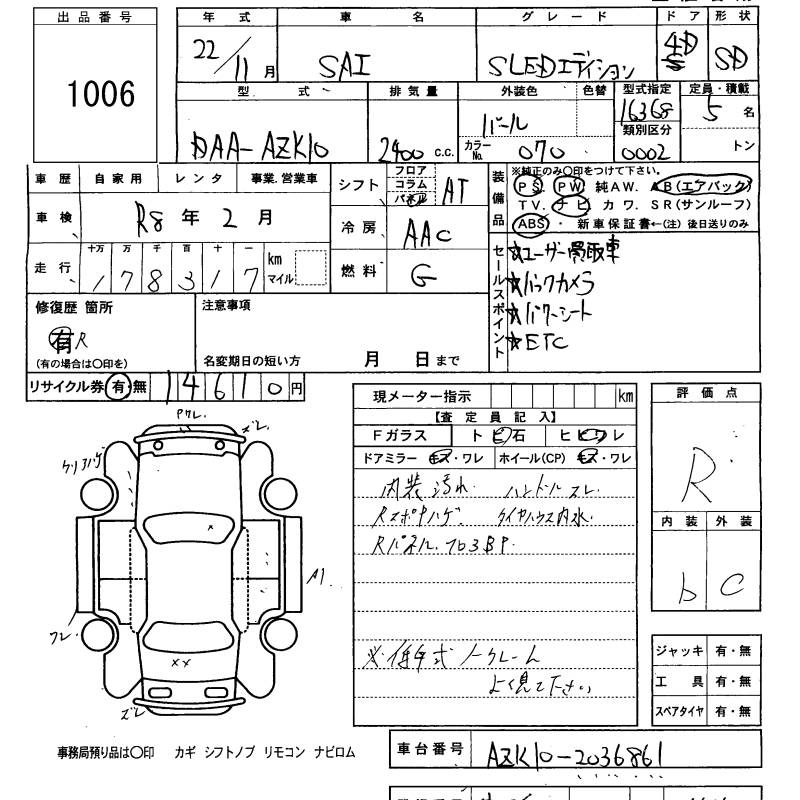 出品番号
1006
年式 車名 グレード ドア 形状
22/11月 SAI SLEDエディション 4D SD
型式 排気量 外装色 色替 型式指定 定員・積載
DAA-AZK10 2400 c.c. パール 16368 5名
カラーNo. 070 類別区分 0002 トン
車歴 自家用 レンタ 事業.営業車
シフト フロア コラム パネル AT
装備品 ※純正のみ〇印をつけて下さい。
PS. PW 純AW. AB(エアバック)
TV. ナビ カワ. SR(サンルーフ)
ABS・ 新車保証書←(注) 後日送りのみ
車検 R8年2月
冷房 AAC
走行 十万 万 千 百 十 一 km マイル
178317
燃料 G
セールスポイント
☆ユーザー買取車
☆バックカメラ
☆パワーシート
☆ETC
修復歴 箇所 注意事項
有R
(有の場合は〇印を) 名変期日の短い方 月 日まで
リサイクル券 有・無 14610円
現メーター指示 km
【査定員記入】
Fガラス トビ石 ヒビワレ
ドアミラー キズ・ワレ ホイール(CP) キズ・ワレ
内装汚れ ハンドルスレ
タイヤハウス内水
Rパネル.
※年式ノークレーム
よく見て下さい
評価点
R
内装 外装
b C
ズレ
A1
ワレ
××
ズレ
ジャッキ 有・無
工具 有・無
スペアタイヤ 有・無
事務局預り品は〇印 カギ シフトノブ リモコン ナビロム
車台番号 AZK10-2036861